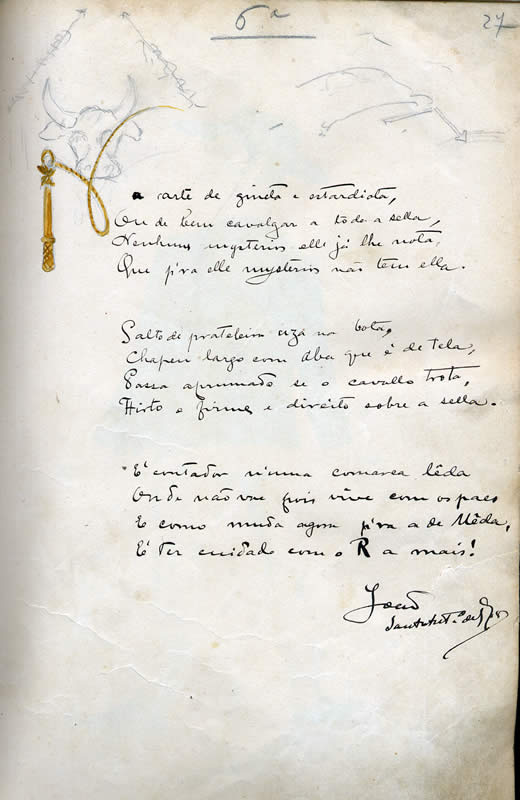 6ª
27
Na arte de gineta e estardiota,
Ou de bem cavalgar a toda a sella,
Nenhuns mysterios elle já lhe nota,
Que p'ra elle mysterios não tem ella.
Salto de prateleira uza na bota,
Chapeu largo com aba que é de tela,
Passa aprumado se o cavallo trota,
Hirto e firme e direito sobre a sella.
E' contador n'uma comarca lêda
Onde não vae pois vive com os paes
E como muda agora p'ra a de Mêda,
E' ter cuidado com o R a mais!
João